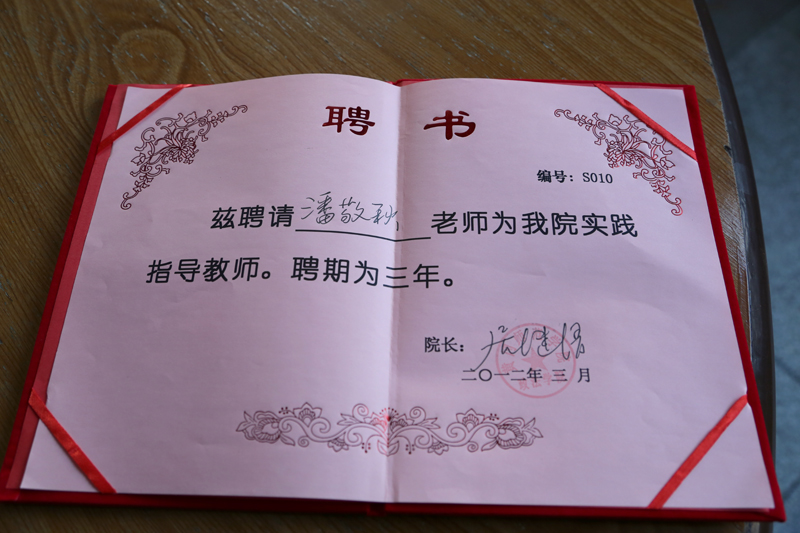 聘 书
编号：S010
兹聘请潘敬秋老师为我院实践
指导教师。聘期为三年。
院长：
二〇一二年 三 月